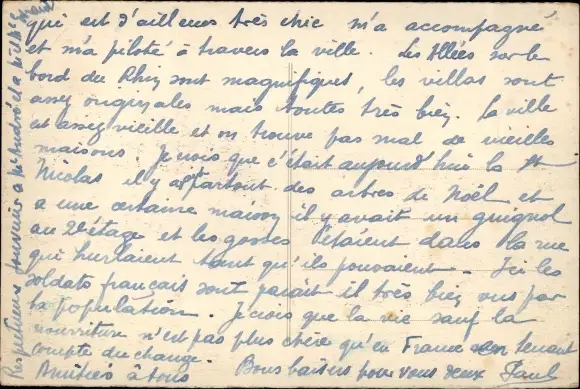 qui est d'ailleurs très chic m'a accompagné
et m'a piloté à travers la ville. Les Allées sur le
bord du Rhin sont magnifiques, les villas sont
assez originales mais toutes très bien. La ville
est assez vieille et on trouve pas mal de vieilles
maisons. Je crois que c'était aujourd'hui la St
Nicolas il y a partout des arbres de Noël et
a une certaine maison il y avait un guignol
au 2e étage et les gosses étaient dans la rue
qui hurlaient tant qu'ils pouvaient. Ici les
soldats français sont paraît il très bien vus par
la population. Je crois que la vie sauf la
nourriture n'est pas plus chère qu'en France en tenant
compte du change.
Amitiés à tous Bons baisers pour vous deux Paul
Respectueux souvenirs à Mr André et à